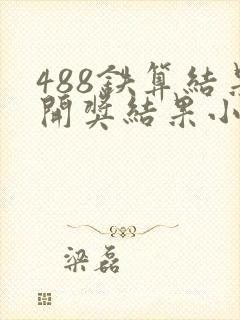 488鉄算結果
開奨結果小
梁磊